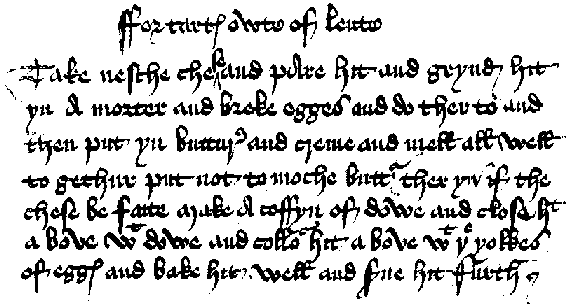 ffor tartꝭ owto of lento
Take nesche chese and pare hit and grynd hit
yn A morter and breke egges and do ther to and
then put yn buttur and creme and mell all well
to gethur put not to moche buttᵉ ther yn if the
chese be fatte make A coffyn of dowe and close hᵗ
a bove wᵗ dowe and collᵒ hit a bove wᵗ yᵉ yolkes
of eggꝭ and bake hit well and sᵉue hit furth